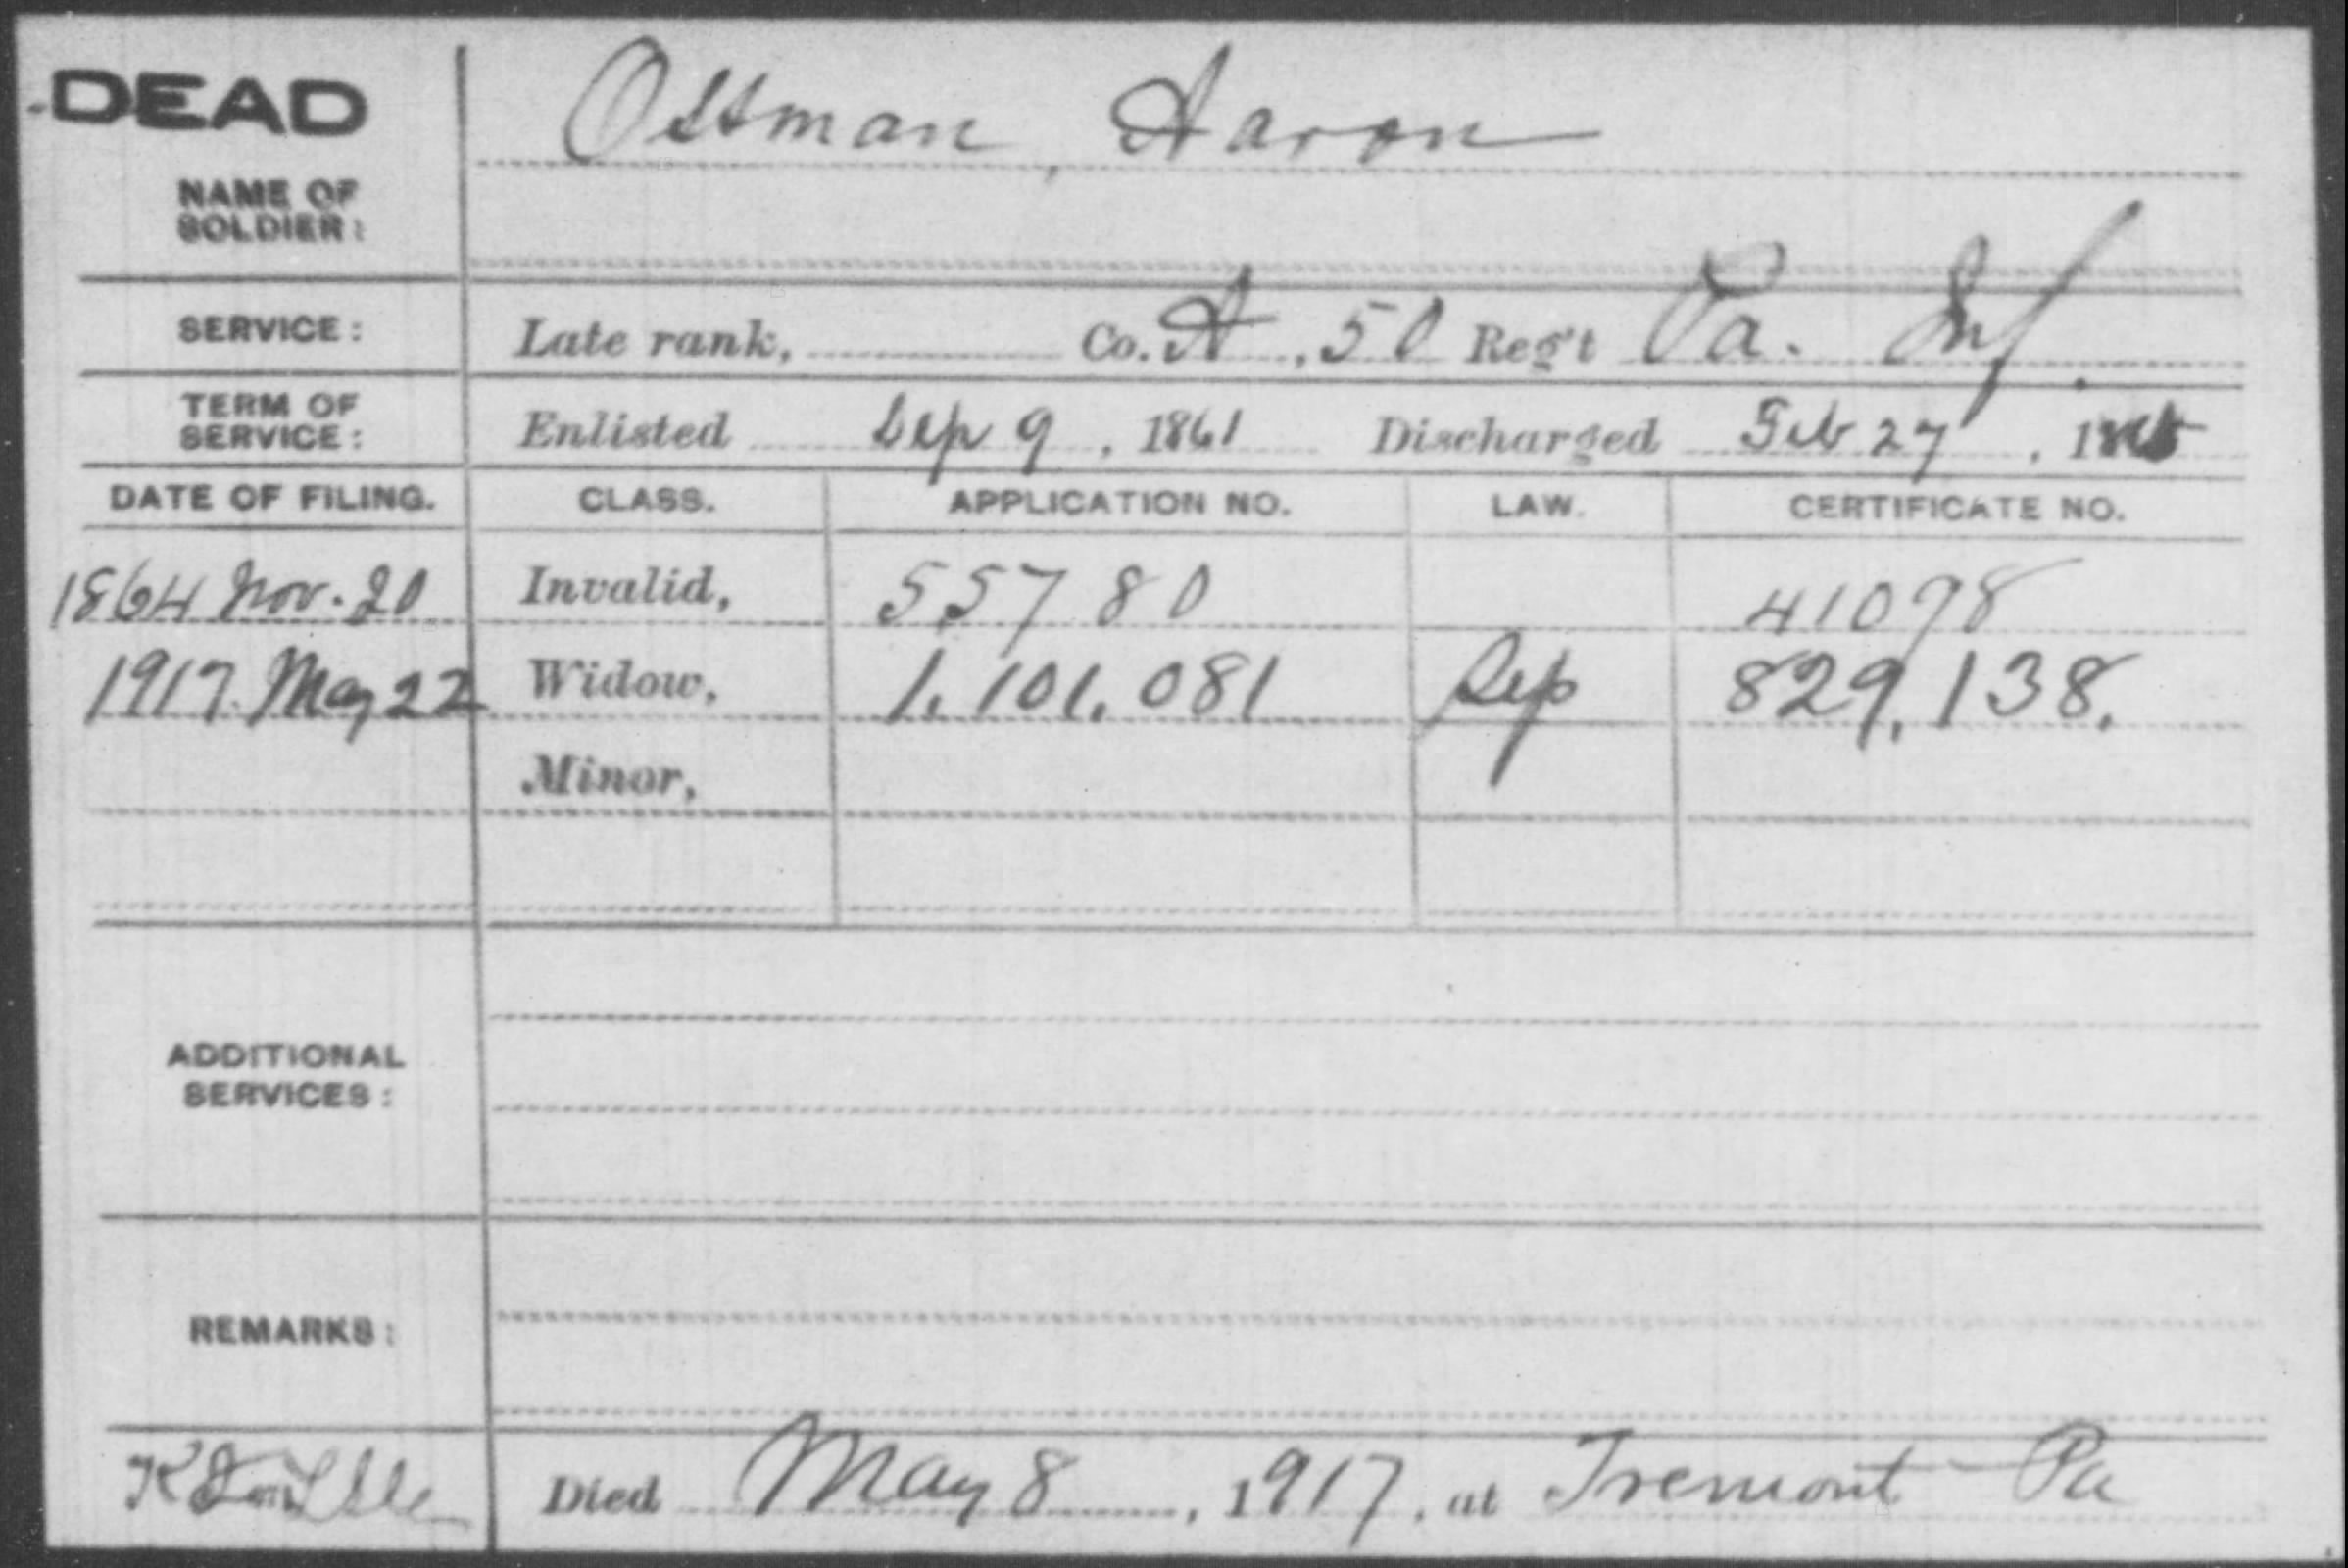 DEAD
Ottman, Aaron
NAME OF
SOLDIER:
SERVICE: Late rank, Co. A, 50 Reg't Pa. Inf.
TERM OF
SERVICE: Enlisted Sep 9, 1861 Discharged Feb 27, 1865
DATE OF FILING. CLASS. APPLICATION NO. LAW. CERTIFICATE NO.
1864 Nov. 20 Invalid, 55780 41098
1917. May 22 Widow, 1,101,081 Sep 829,138.
Minor,
ADDITIONAL
SERVICES:
REMARKS:
Died May 8, 1917, at Tremont Pa